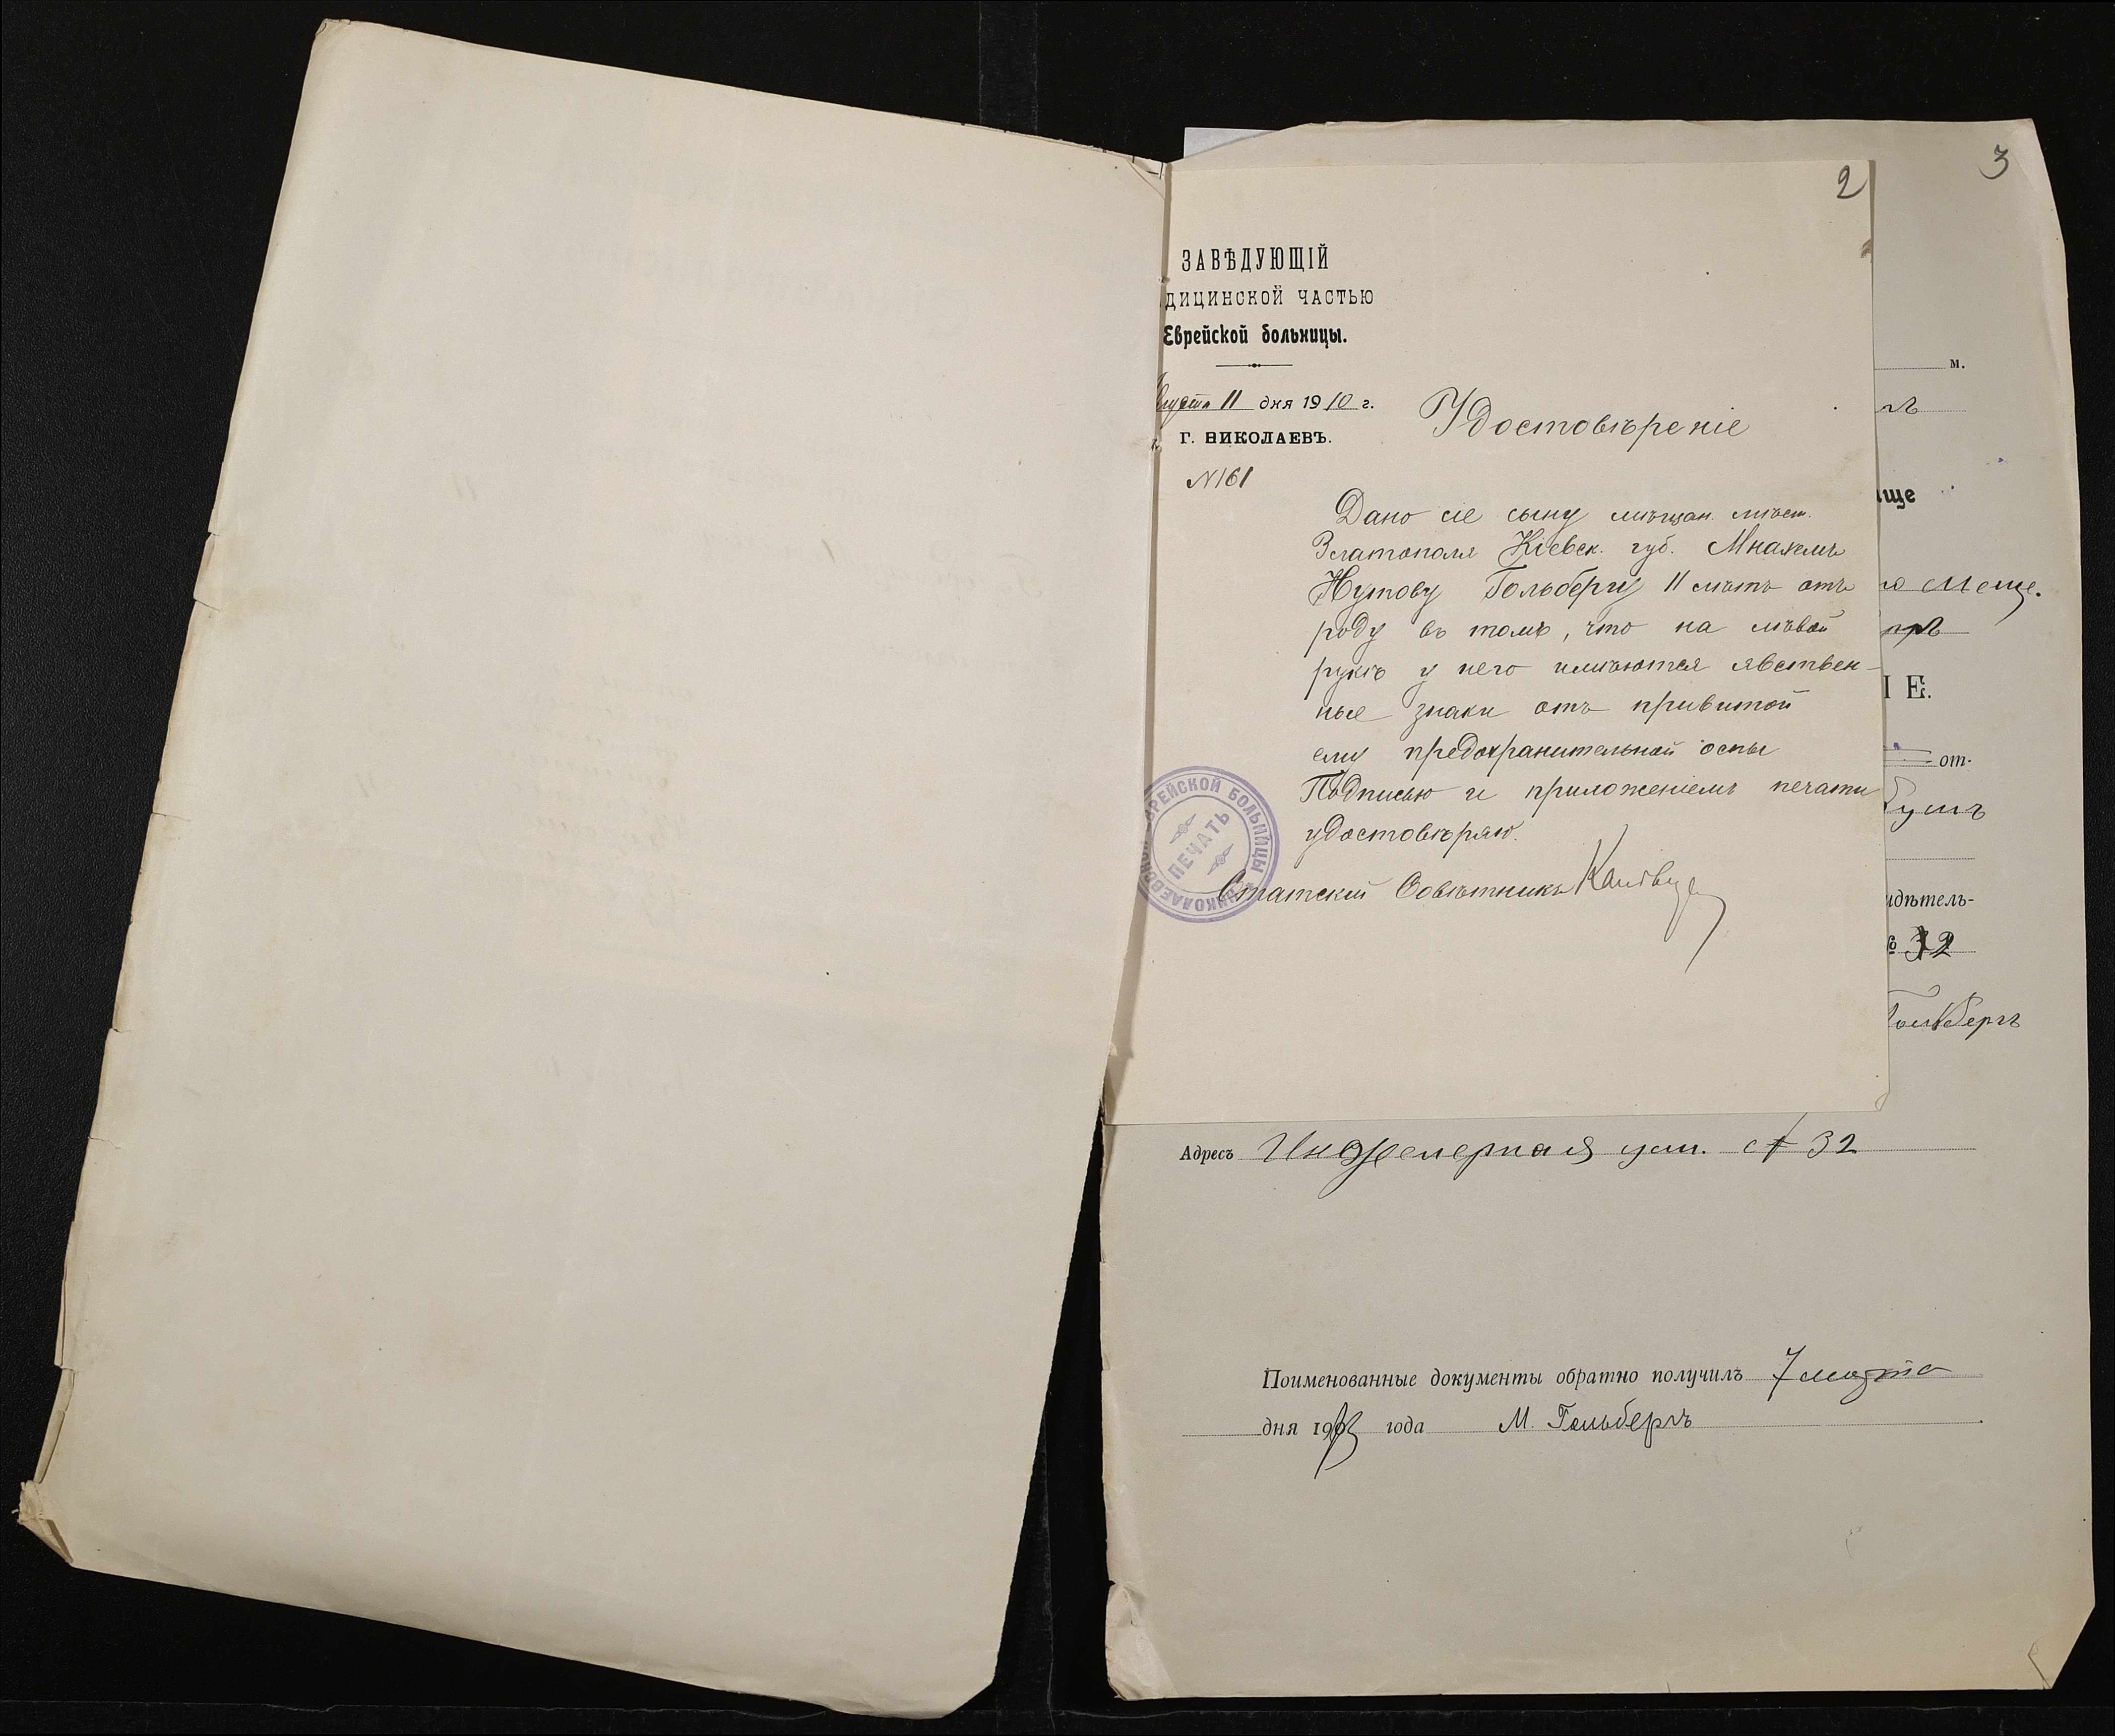 2
ЗАВѢДУЮЩІЙ
ДИЦИНСКОЙ ЧАСТЬЮ
Еврейской больницы.
11 дня 1910 г.
Г. НИКОЛАЕВЪ.
№161
Удостовѣреніе
Дано сіе сыну мѣщан. мѣст.
Златополя Кіевск. губ.
Гольбергу 11 лѣтъ отъ
роду въ томъ, что на лѣвой
рукѣ у него имѣются явствен-
ные знаки отъ привитой
ему предохранительной оспы
Подписью и приложеніемъ печати
удостовѣряю.
Статскій Совѣтникъ
НИКОЛАЕВСКОЙ ЕВРЕЙСКОЙ БОЛЬНИЦЫ
ПЕЧАТЬ
3
м.
ще
І Е.
от-
идѣтель-
32
Гольбергъ
Адресъ Инженерная ул. № 32
Поименованные документы обратно получилъ 7 марта
дня 19 года М. Гольбергъ